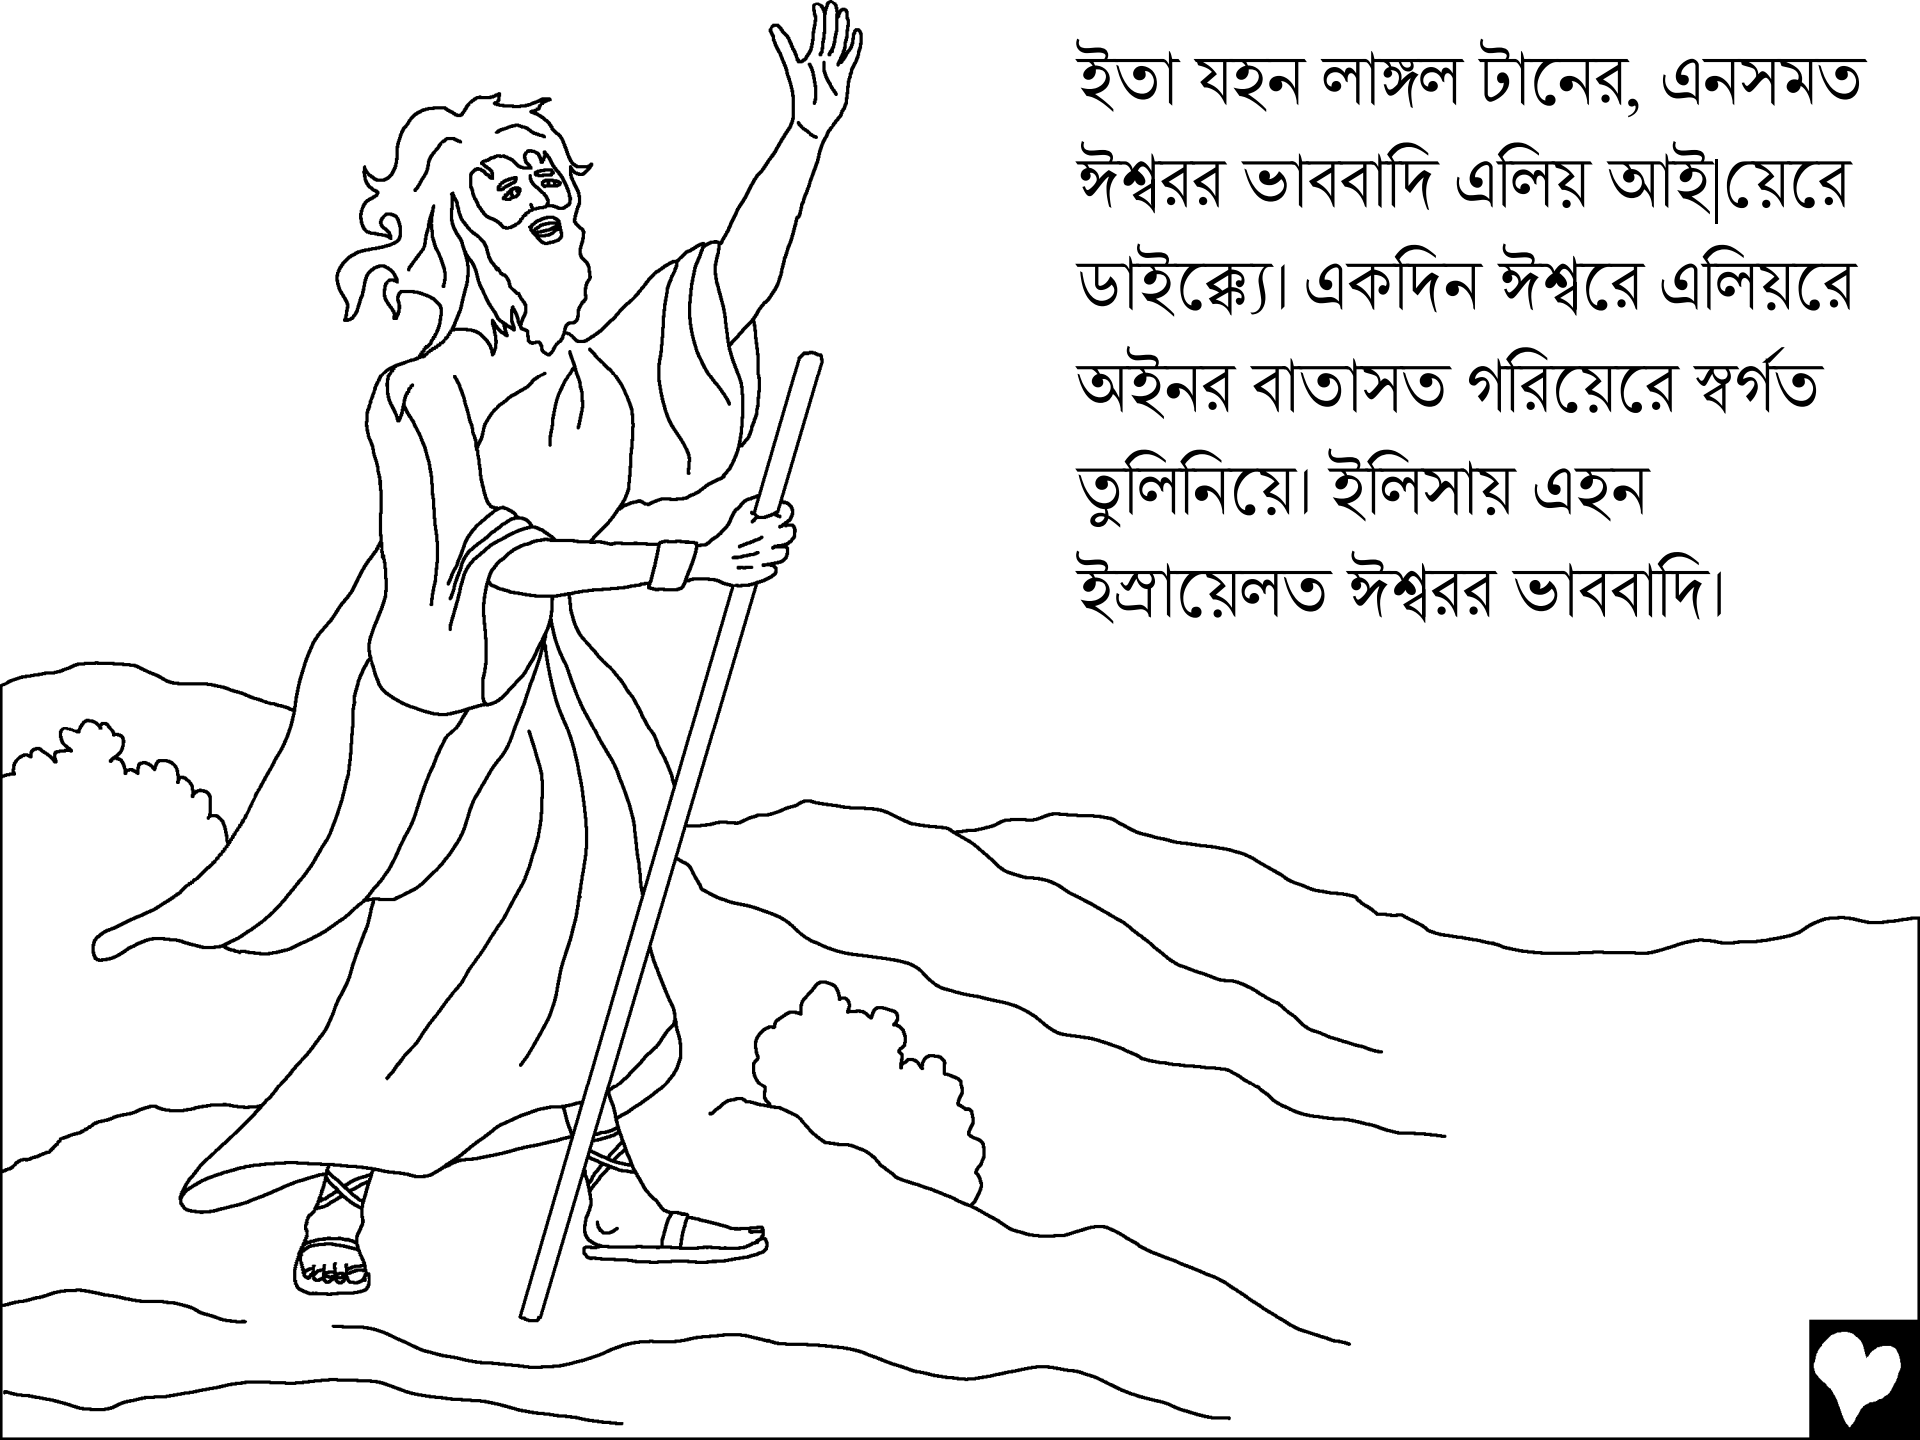 ইতা যহন লাঙ্গল টানের, এনসমত
ঈশ্বরর ভাববাদি এলিয় আই|য়েরে
ডাইক্ক্যে। একদিন ঈশ্বরে এলিয়রে
অইনর বাতাসত গরিয়েরে স্বর্গত
তুলিনিয়ে। ইলিসায় এহন
ইস্রায়েলত ঈশ্বরর ভাববাদি।